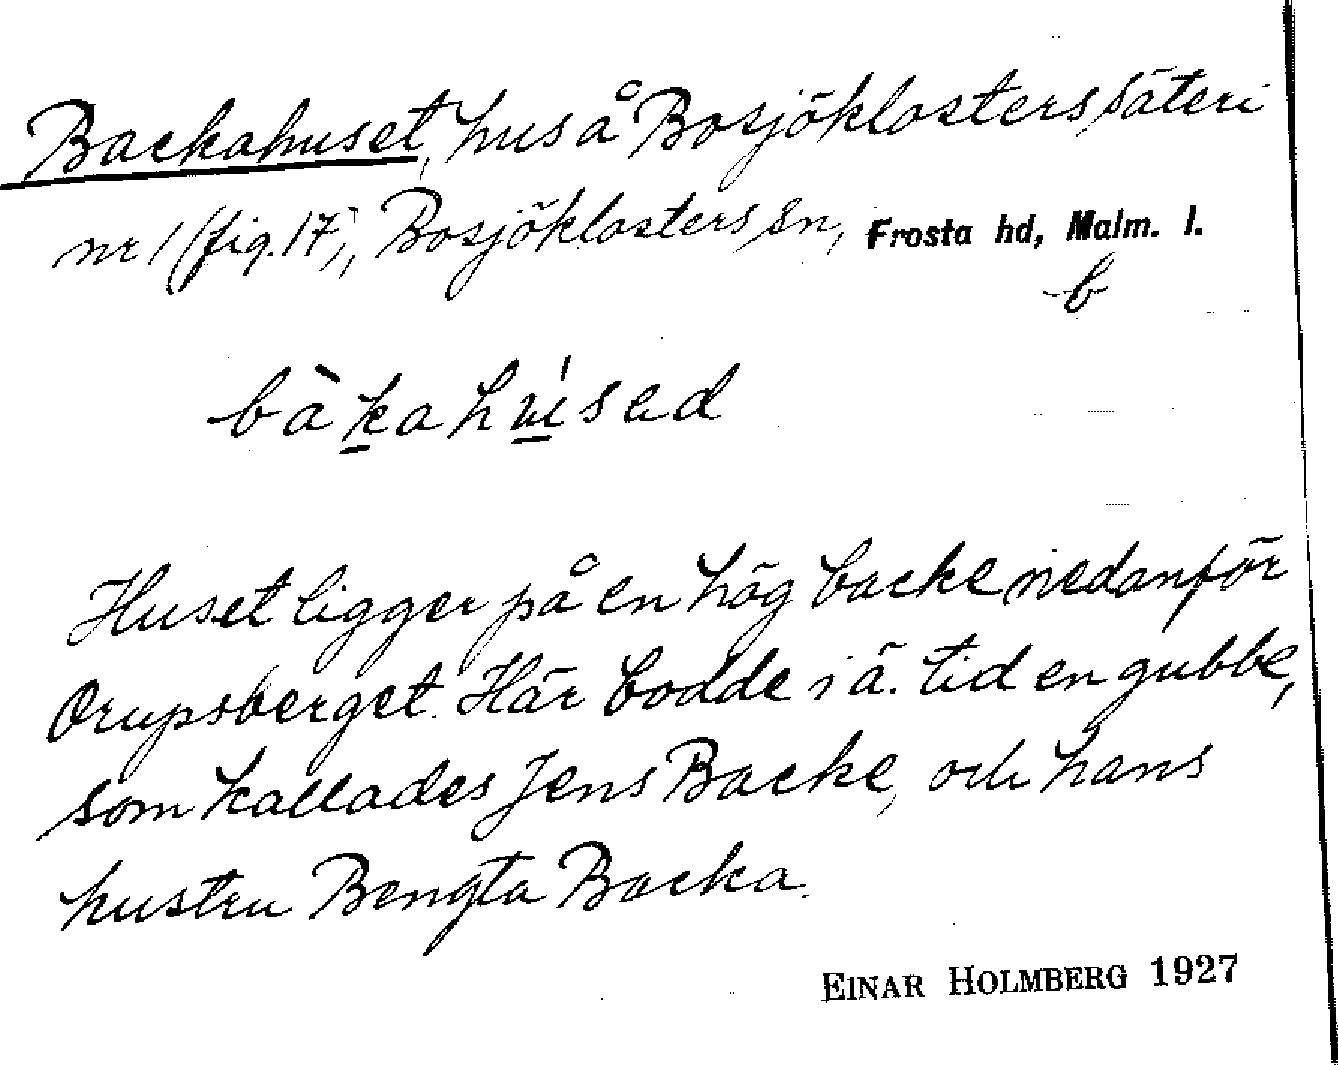 Backahuset, hus å Bosjöklosters säteri
nr 1 (fig. 17), Bosjöklosters sn, Frosta hd, Malm. l.
b
bàkahu̍sad
Huset ligger på en hög backe nedanför
Orupsberget. Här bodde i ä. tid en gubbe,
som kallades Jens Backe, och hans
hustru Bengta Backa.
EINAR HOLMBERG 1927